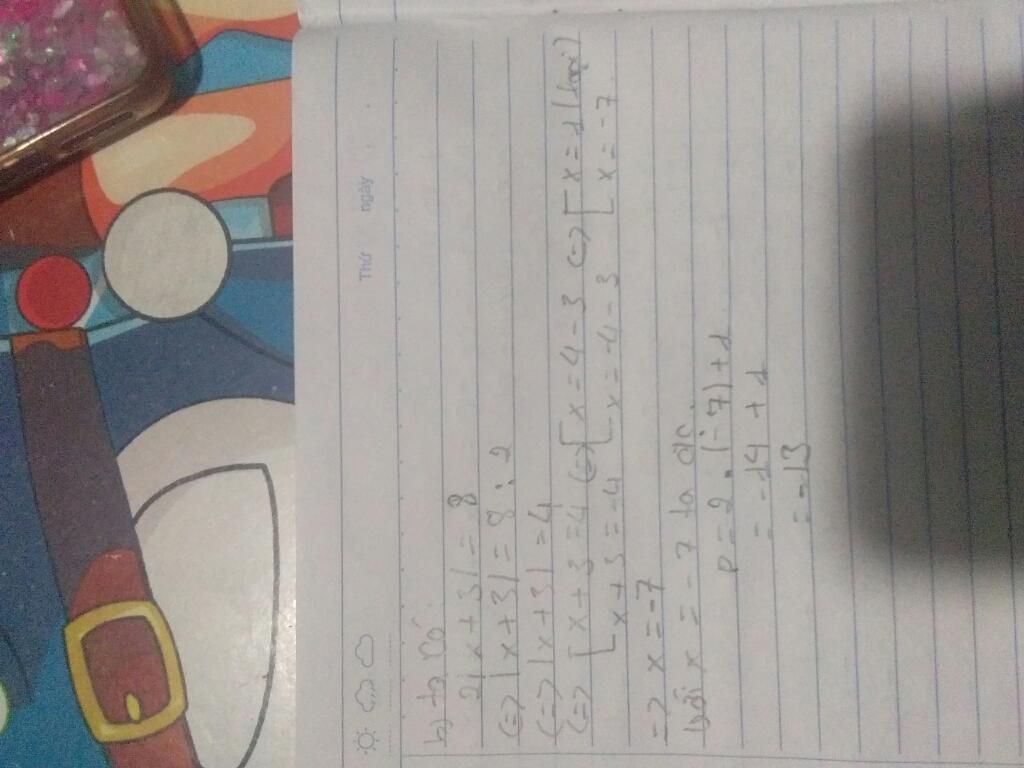 Thứ ngày
b) ta có:
2|x+3| = 8
(=) |x+3| = 8 : 2
(=) |x+3| = 4
(=) [x+3=4 (=) [x=4-3 (=) [x=1 (loại)
[x+3=-4 [x=-4-3 [x=-7
=> x=-7
Với x = -7 ta đc.
P = 2.(-7)+1
= -14 + 1
= -13